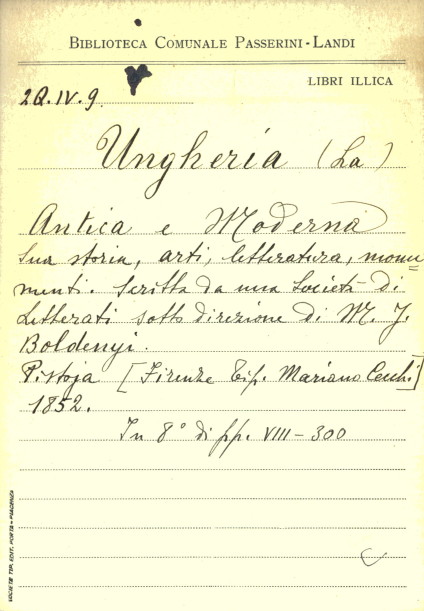 BIBLIOTECA COMUNALE PASSERINI-LANDI
LIBRI ILLICA
2Q.IV.9.
Ungheria (La)
Antica e Moderna
Sua storia, arti, letteratura, monu=
menti. Scritta da una Società di
Letterati sotto direzione di M. J.
Boldenyi.
Pistoja [Firenze Tip. Mariano Cecchi]
1852.
In 8° di pp. VIII-300
SOCIETÀ TIP. EDIT. PORTA - PIACENZA